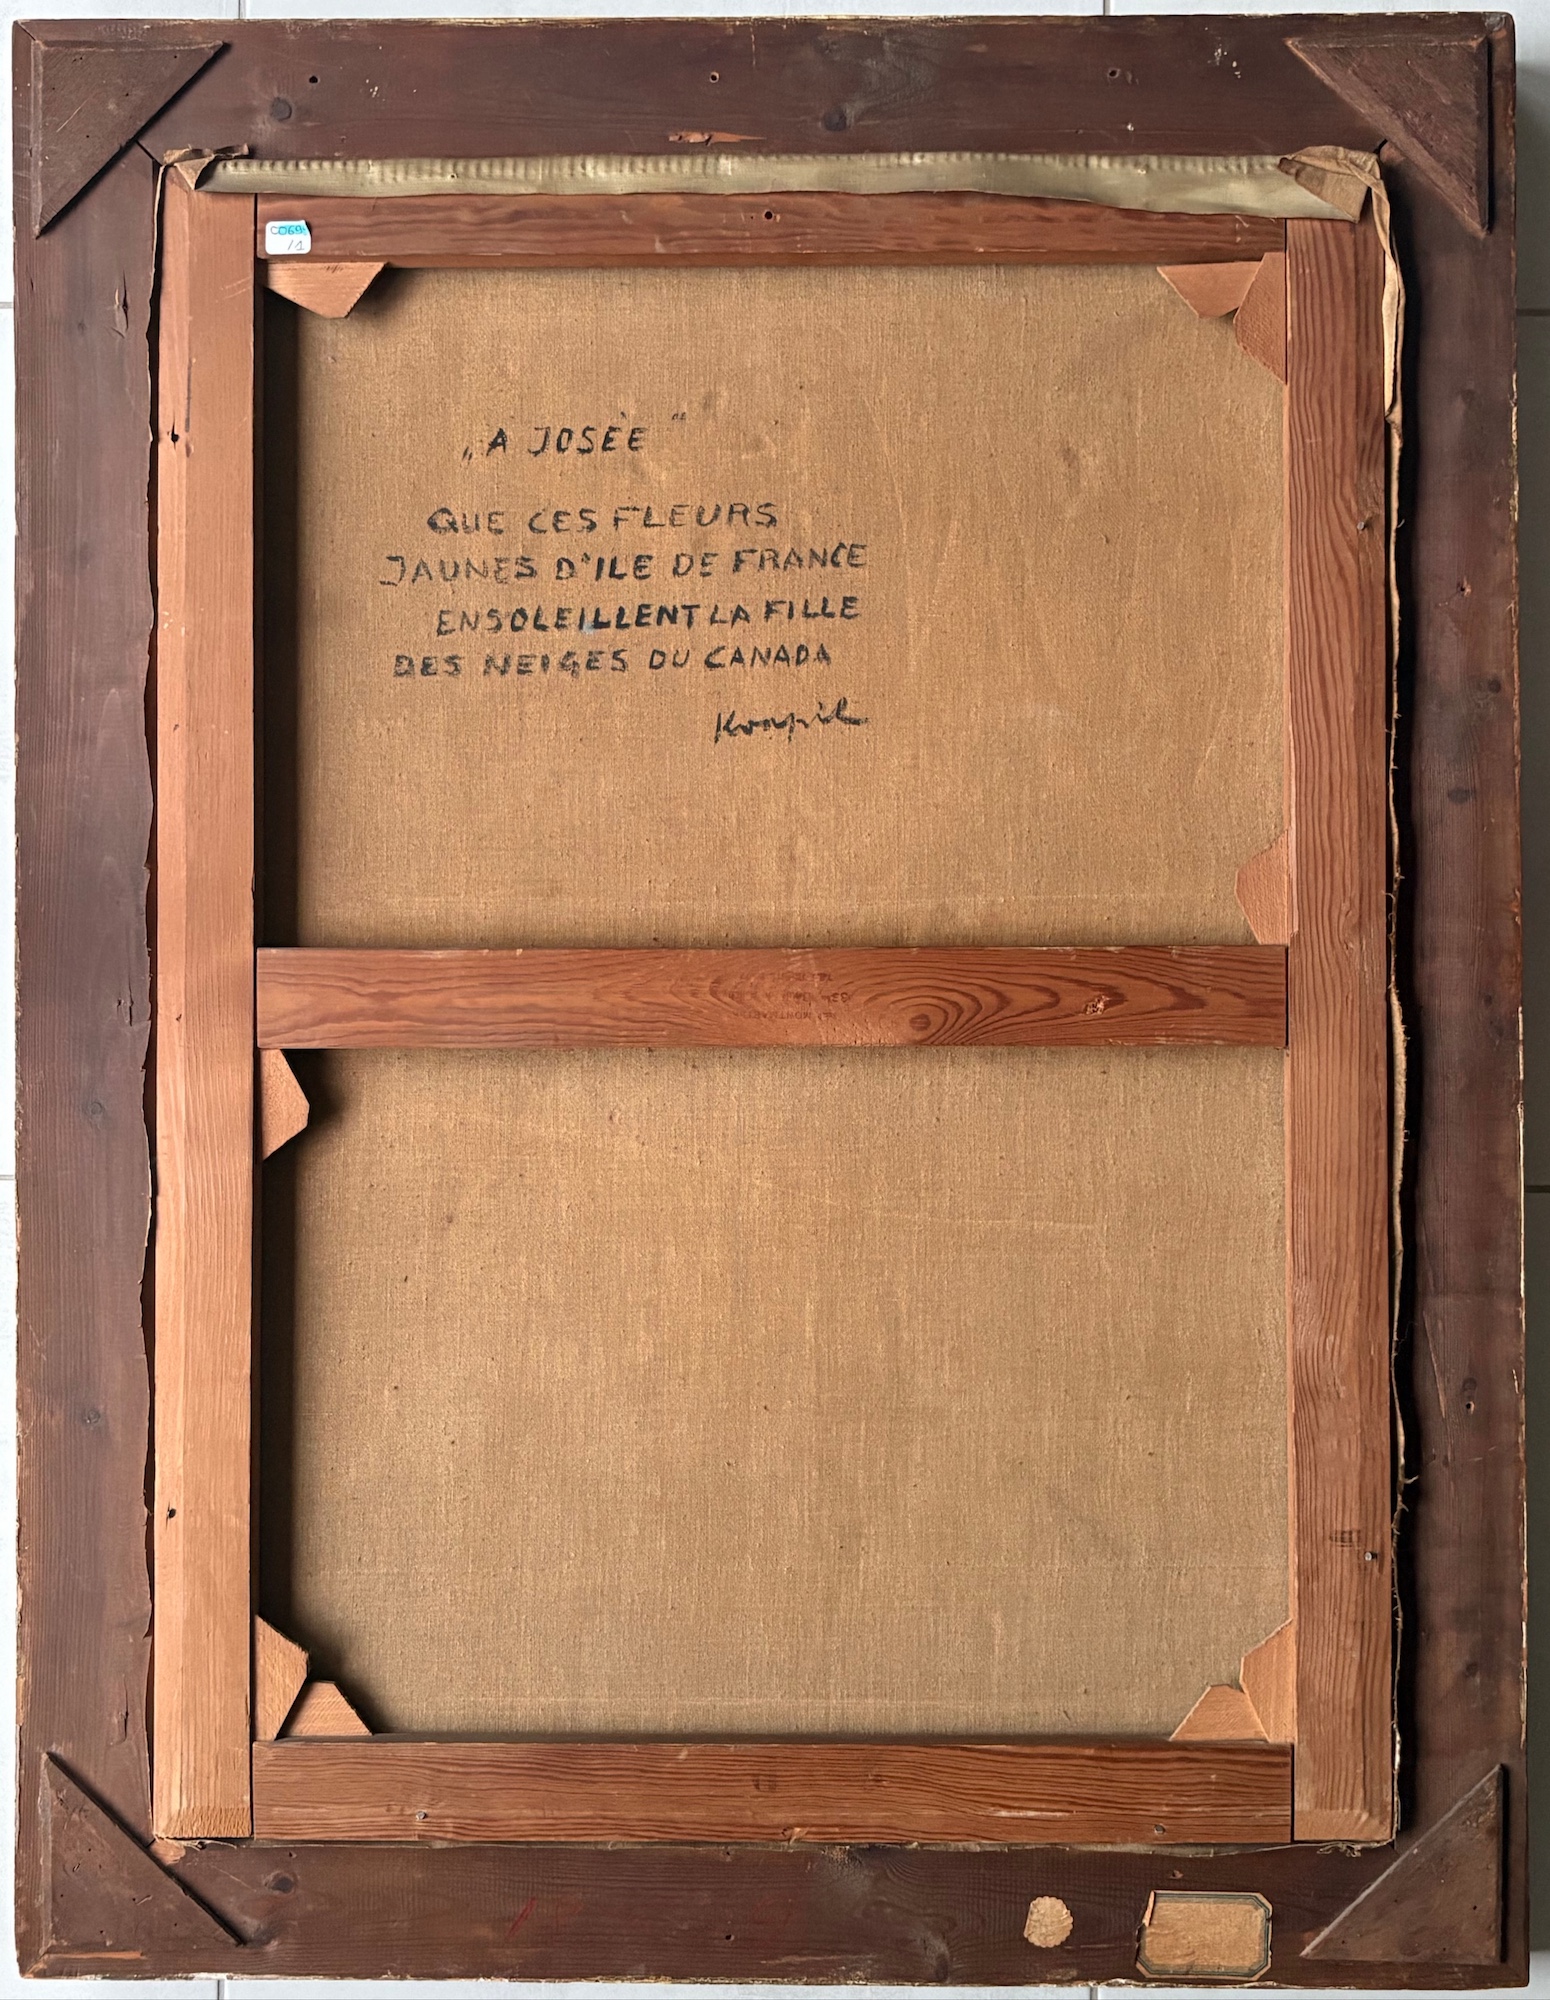 C069
/1
„A JOSÈE“
QUE CES FLEURS
JAUNES D'ILE DE FRANCE
ENSOLEILLENT LA FILLE
DES NEIGES DU CANADA
Kvapil
MONTMARTRE